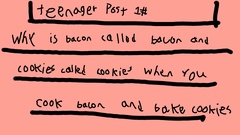 teenager Post 1#
Why is bacon called bacon and
cookies called cookies when you
cook bacon and bake cookies